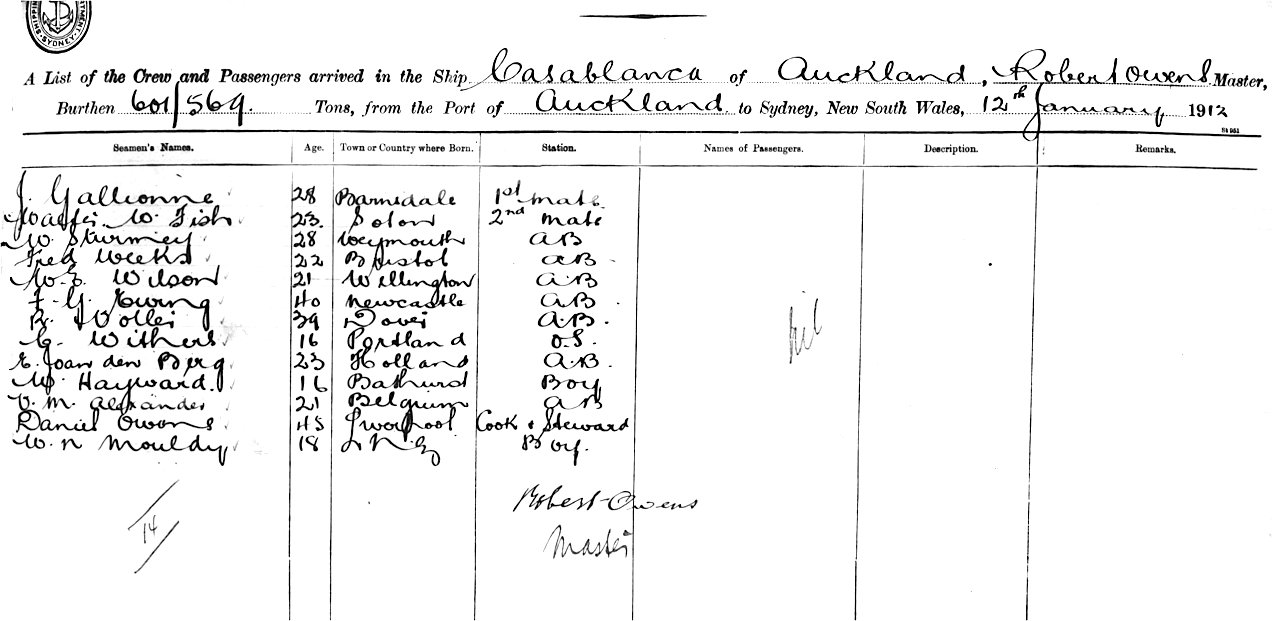 SHIPPING DEPARTMENT SYDNEY
A List of the Crew and Passengers arrived in the Ship Casablanca of Auckland, Robert Owens Master,
Burthen 601/569. Tons, from the Port of Auckland to Sydney, New South Wales, 12th January 1912
Seamen's Names. Age. Town or Country where Born. Station. Names of Passengers. Description. Remarks.
J. Gallionne 28 1st Mate
W. Fish 23. Soton 2nd Mate
W. Sturmey 28 Weymouth AB
Fred Weeks 22 Bristol AB
W.E. Wilson 21 Wellington A.B
F. G. Ewing 40 Newcastle A.B.
R. 39 Dover A.B.
C. Withers 16 Portland O.S.
E. Joan den Berg 23 Holland A.B.
W. Hayward. 16 Bathurst Boy
V. M. Alexander 21 Belgium AB
Daniel Owens 45 Liverpool Cook & Steward
W. N Mouldy 18 Boy.
Nil
Robert Owens
14
Master